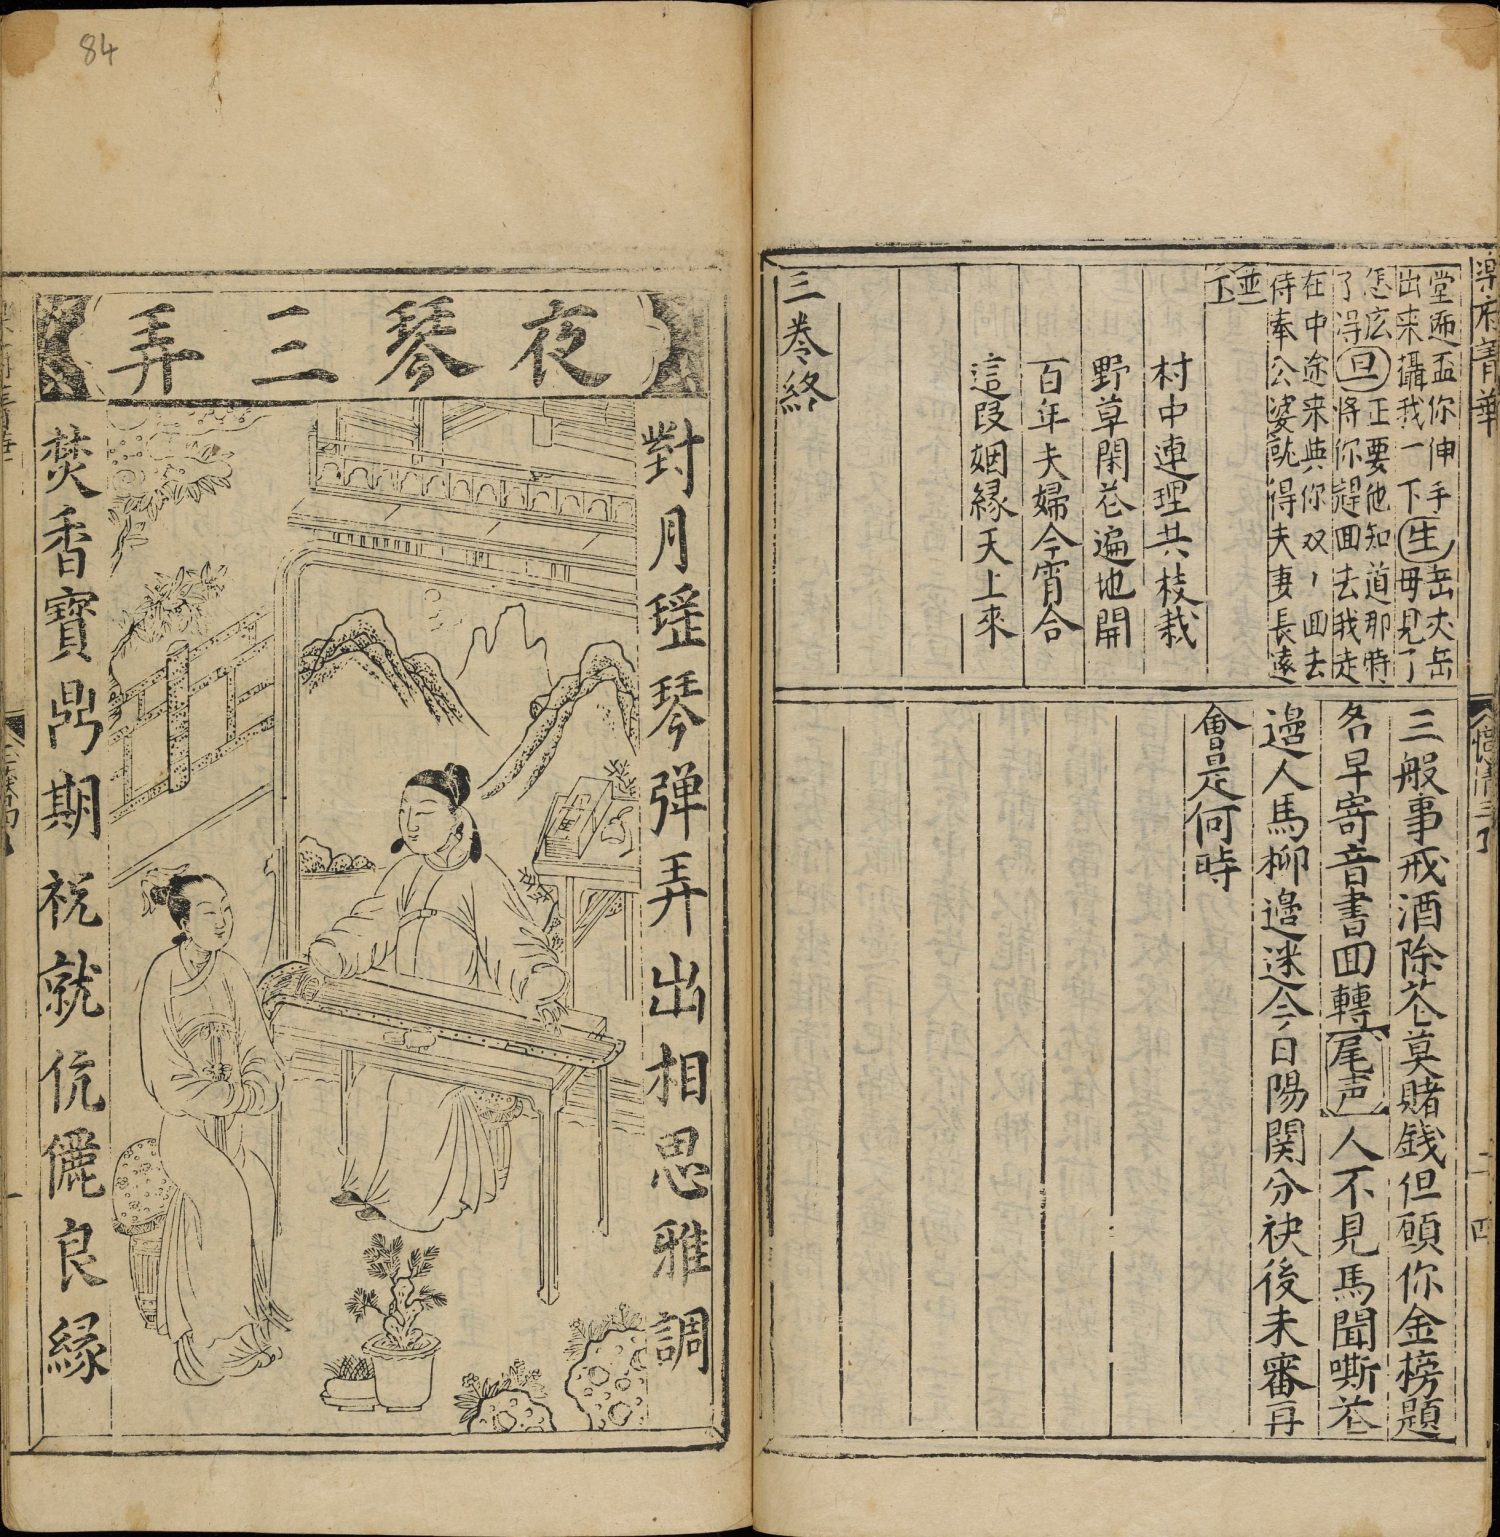 堂遞盃你伸手
出来攝我一下生岳丈岳母見了
怎庅正要他知道那時
了得旦將你趕囬去我走
在中途来與你双〻囬去
侍奉公婆就得夫妻長遠
並下
村中連理共枝栽
野草閑花遍地開
百年夫婦今宵合
這段姻緣天上來
三卷終
三般事戒酒除花莫賭錢但願你金榜題
名早寄音書囬轉尾声人不見馬聞嘶花
邉人馬柳邉迷今日陽関分袂後未審再
會是何時
二十四
夜琴三弄
對月瑶琴弹弄出相思雅調
焚香寶鼎期祝就伉儷良緣
84